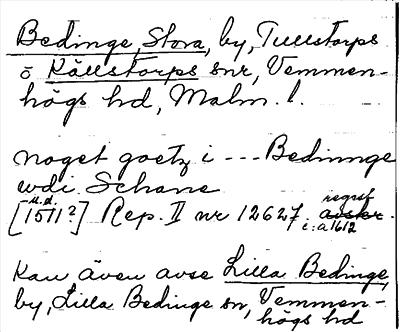 Bedinge, Stora, by, Tullstorps
o Källstorps snr, Vemmen-
högs hd, Malm. l.
noget goetz i --- Bedinnge
wdi Schane
u.d. regest
[1511?] Rep. II nr 12627. avskr.
c:a 1612
Kan även avse Lilla Bedinge,
by, Lilla Bedinge sn, Vemmen-
högs hd